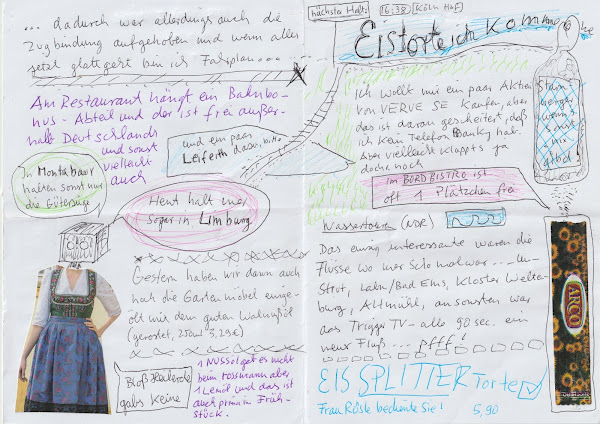 ... dadurch war allerdings auch die
Zugbindung aufgehoben und wenn alles
jetzt glatt geht bin ich Fahrplan....
Am Restaurant hängt ein Bahnbo-
nus-Abteil und der ist frei außer-
halb Deutschlands
und sonst
vielleicht
auch
und ein paar
Leiferth dazu, bitte
In Montabaur
halten sonst nur
die Güterzüge
Heut halt mer
sogar in Limburg
Gestern haben wir dann auch
noch die Gartenmöbel eingeölt
mit dem guten Walnußöl
(geröstet, 250ml 3,29€)
Bloß Heubrote
gabs keine
1 NUSSöl gabs nicht
beim Rossmann aber
1 Leinöl und das ist
auch prima im Früh-
stück.
nächster Halt: 16:38 (Köln Hbf)
Eistorte ich komme
Ich wollt mir ein paar Aktien
von VERVE SE kaufen, aber
das ist daran gescheitert, daß
ich kein Telefon Banky hab.
Aber vielleicht klappts ja
doch noch
im BORDBISTRO ist
oft 1 Plätzchen frei
Wassertouren (NDR)
Das einzig interessante waren die
Flüsse wo mer scho mal war... Un-
strut, Lahn/Bad Ems, Kloster Welten-
burg, Altmühl, ansonsten war
das Trigger TV - alle 90 sec. ein
neuer Fluß... pfff!
EIS SPLITTER Torte
Frau Röste bediente Sie! 5,90
ARCO